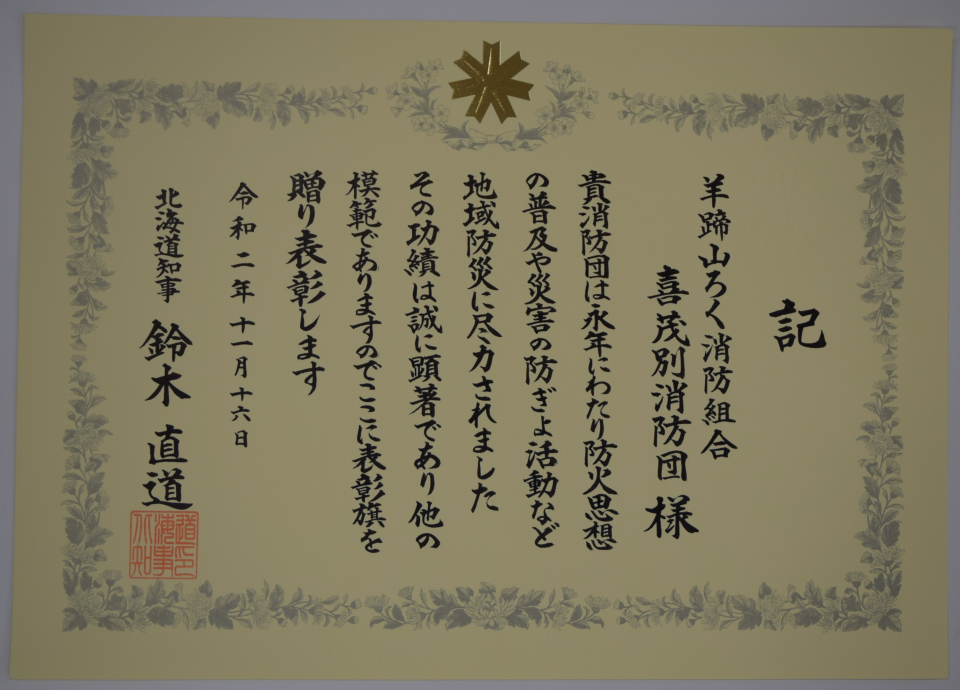 記
羊蹄山ろく消防組合
喜茂別消防団 様
貴消防団は永年にわたり防火思想
の普及や災害の防ぎょ活動など
地域防災に尽力されました
その功績は誠に顕著であり他の
模範でありますのでここに表彰旗を
贈り表彰します
令和二年十一月十六日
北海道知事 鈴木 直道